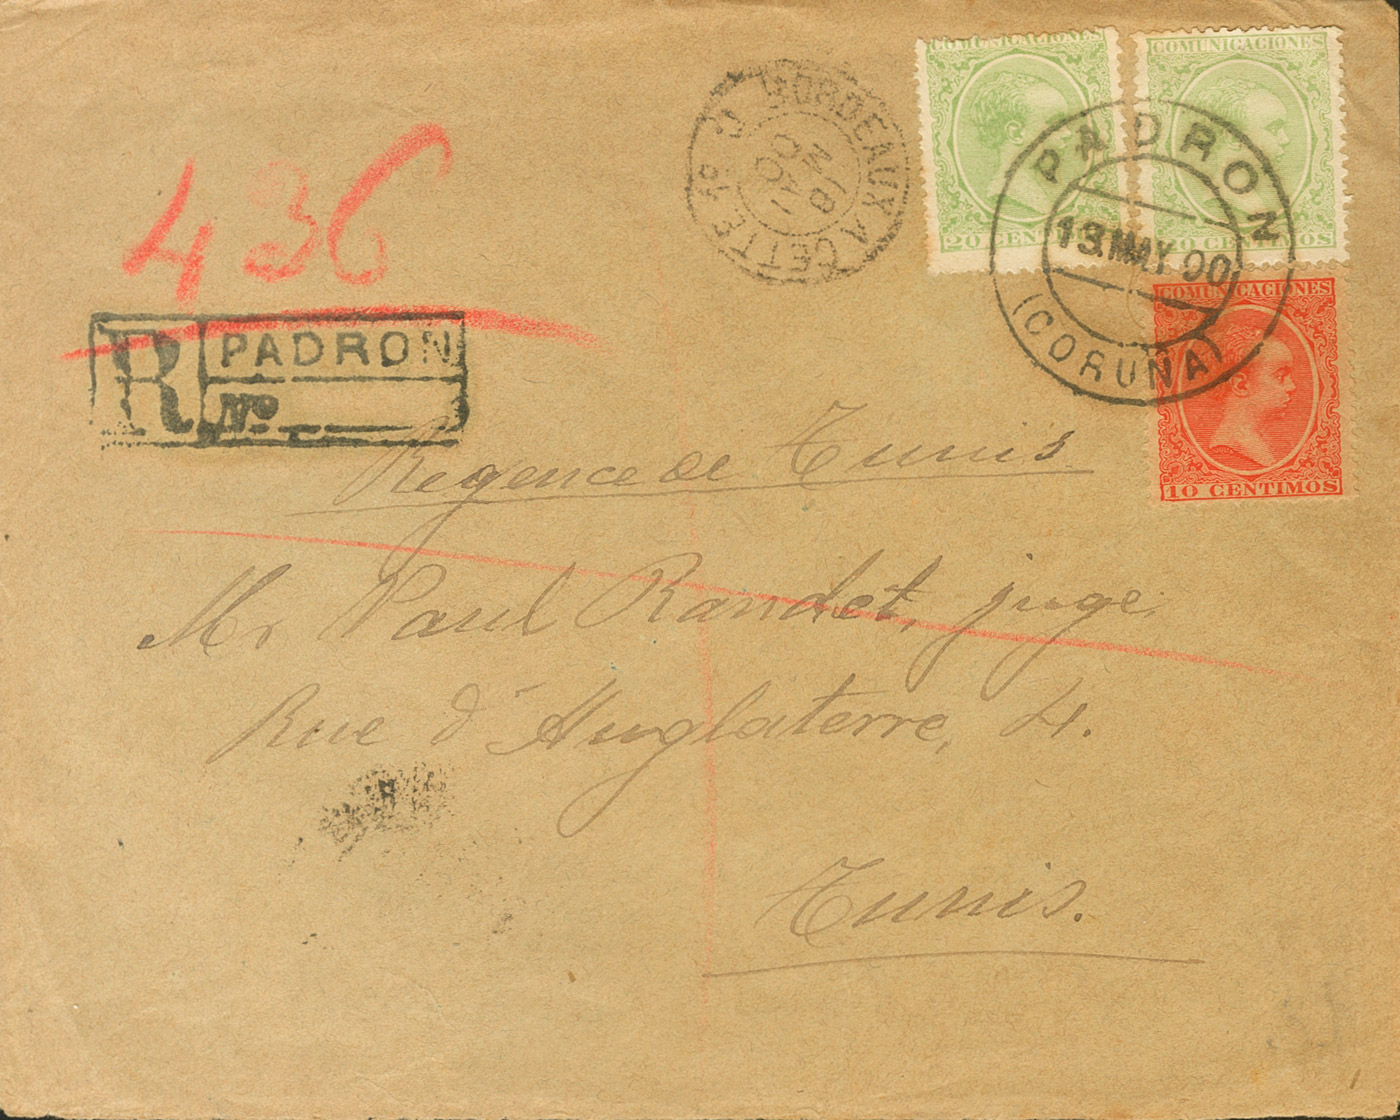 COMUNICACIONES
20 CENT
COMUNICACIONES
20 CENTIMOS
COMUNICACIONES
10 CENTIMOS
PADRON
13.MAY 00
(CORUÑA)
BORDEAUX A CETTE
18
MAI
00
436
R PADRON
Nº
Regence de Tunis
Mr Paul Randet, juge,
Rue d'Angleterre, 4.
Tunis.